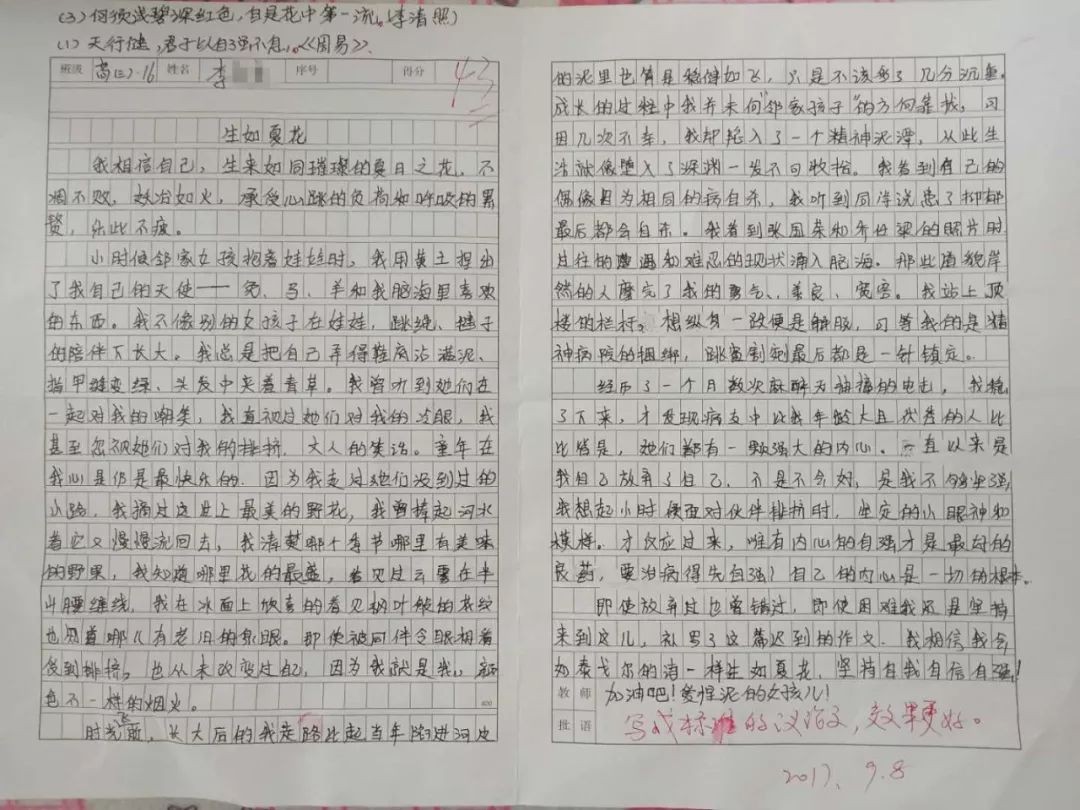 (3) 何须浅碧深红色,自是花中第一流。(李清照)
(1) 天行健,君子以自强不息。《周易》.
班级 高(三)·16 姓名 李 序号 得分 43
生如夏花
我相信自己,生来如同璀璨的夏日之花,不
凋不败,妖冶如火,承受心跳的负荷和呼吸的累
赘,乐此不疲。
小时候邻家女孩抱着娃娃时,我用黄土捏出
了我自己的天使——兔、马、羊和我脑海里喜欢
的东西。我不像别的女孩子在娃娃,跳绳,毽子
的陪伴下长大。我总是把自己弄得鞋底沾满泥、
指甲缝变绿、头发中夹着青草。我曾听到她们在
一起对我的嘲笑,我直视过她们对我的冷眼,我
甚至忽视她们对我的排挤,大人的笑话。童年在
我心是仍是最快乐的,因为我走过她们没到过的
小路,我摘过这世上最美的野花,我曾捧起河水
看它又慢慢流回去,我清楚哪个季节哪里有美味
的野果,我知道哪里花的最盛,看见过云雾在半
山腰缠线,我在冰面上欣喜的看见枫叶般的花纹
也知道哪儿有老旧的泉眼。即使被同伴令眼相看
受到排挤,也从未改变过自己,因为我就是我,
色不一样的烟火。
400
时光飞逝,长大后的我走路比起当年陷进河边
的泥里也算是稳健如飞,只是不该多了几分沉重。
成长的过程中我并未向“邻家孩子”的方向靠拢,可
因几次不幸,我却陷入了一个精神泥潭,从此生
活就像堕入了深渊一发不可收拾。我看到自己的
偶像因为相同的病自杀,我听到同学说患了抑郁
最后都会自杀。我看到张国荣和乔任梁的照片时
过往的遭遇和难忍的现状涌入脑海。那些道貌岸
然的人磨完了我的勇气、善良、宽容。我站上顶
楼的栏杆,想纵身一跃便是解脱,可等我的是精
神病院的捆绑,跳窗割剜最后都是一针镇定。
经历了一个月数次麻醉大脑的电击,我稳
了下来,才发现病友中比我年龄大且优秀的人比
比皆是,她们都有一颗强大的内心。一直以来是
我自己放弃了自己,不是不会好,是我不够坚强
我想起小时侯面对伙伴排挤时,坚定的小眼神和
模样。才反应过来,唯有内心的自强才是最好的
良药,要治病得先自强!自己的内心是一切的根本。
即使放弃过也曾错过,即使困难我还是坚持
来到这儿,补写了这篇迟到的作文。我相信我会
如泰戈尔的诗一样生如夏花,坚持自我自信自强!
教师
批语
加油吧!爱捏泥的女孩儿!
写成标准的议论文,效果更好。
2017. 9.8